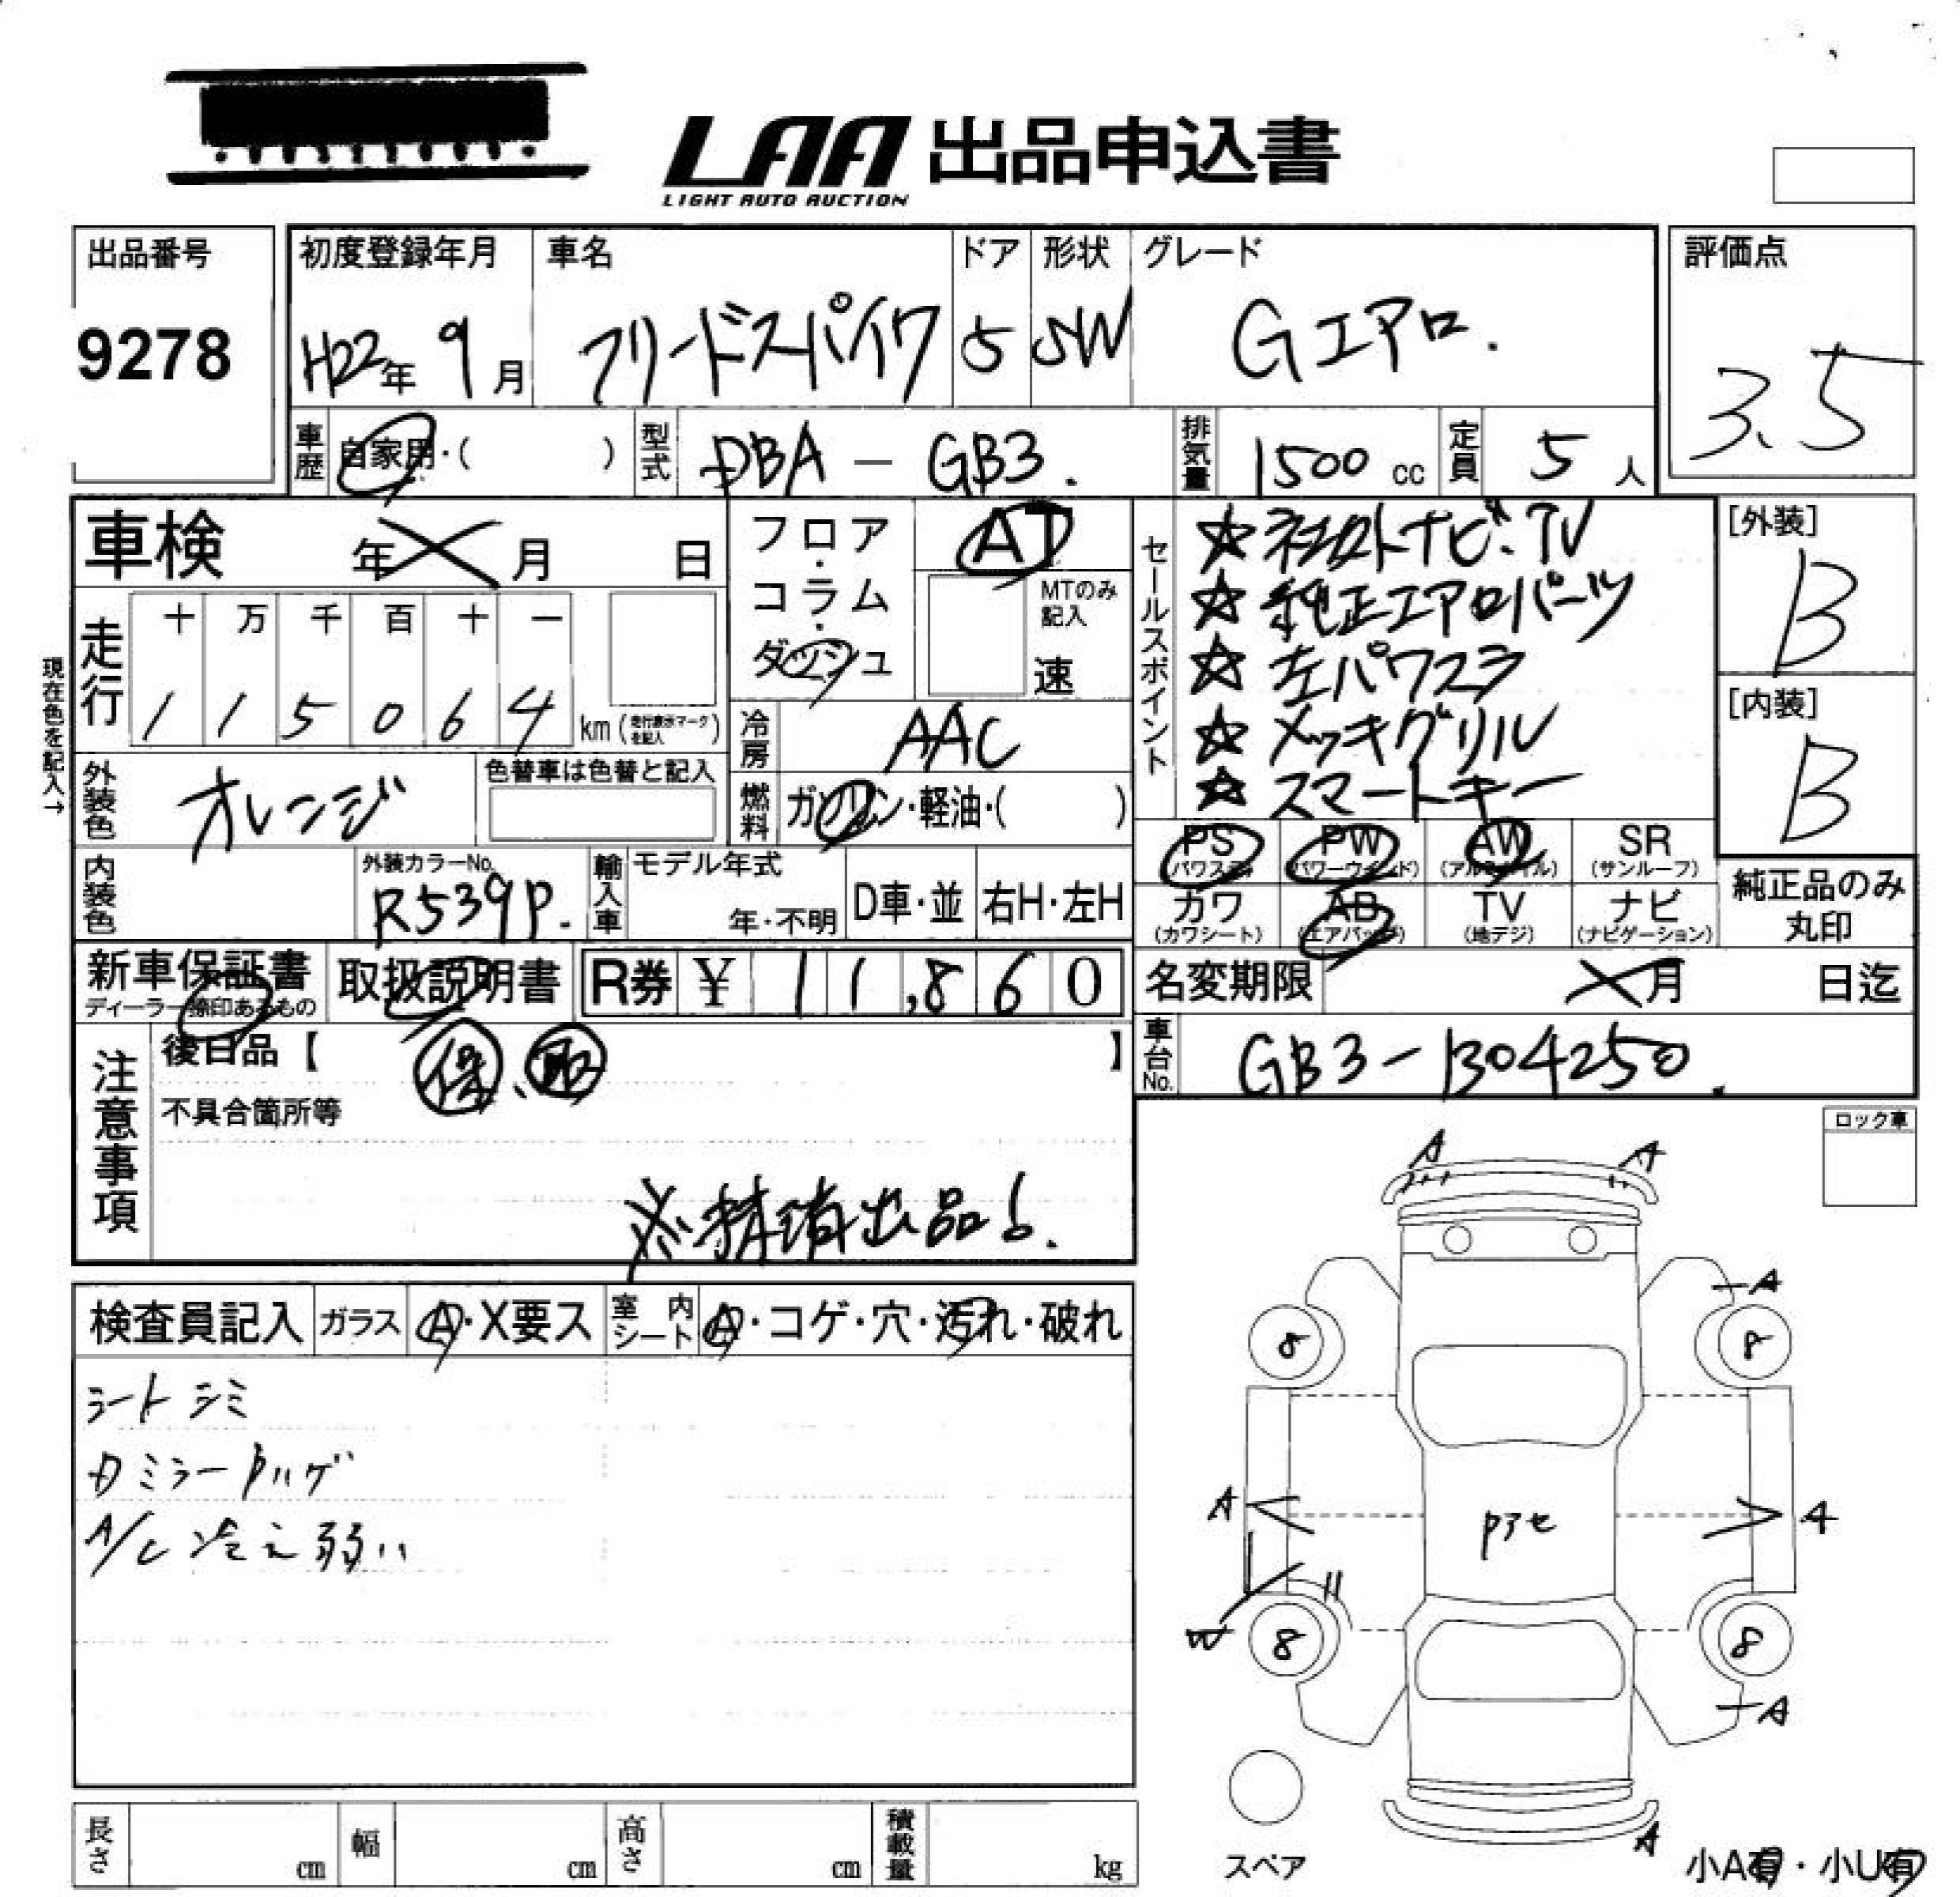 LAA 出品申込書
LIGHT AUTO AUCTION
出品番号
9278
初度登録年月
H22年 9月
車名
フリードスパイク
ドア
5
形状
SW
グレード
Gエアロ.
評価点
3.5
車歴
自家用・( )
型式
DBA - GB3.
排気量
1500 cc
定員
5 人
車検 年 月 日
フロア・コラム・ダッシュ
AT
MTのみ記入
速
セールスポイント
☆社外ナビ・TV
☆純正エアロパーツ
☆左パワスラ
☆メッキグリル
☆スマートキー
[外装]
B
[内装]
B
現在色を記入→
走行
十 万 千 百 十 一
1 1 5 0 6 4 km (走行表示マークを記入)
冷房
AAC
外装色
オレンジ
色替車は色替と記入
燃料
ガソリン・軽油・( )
PS (パワステ)
PW (パワーウインド)
AW (アルミホイル)
SR (サンルーフ)
カワ (カワシート)
AB (エアバッグ)
TV (地デジ)
ナビ (ナビゲーション)
純正品のみ丸印
内装色
外装カラーNo.
R539P.
輸入車
モデル年式
年・不明
D車・並
右H・左H
新車保証書
ディーラー捺印あるもの
取扱説明書
R券 ¥ 11,860
名変期限 月 日迄
車台No.
GB3-1304250.
注意事項
後日品【 保、取 】
不具合箇所等
※精済出品!.
ロック車
検査員記入
ガラス
A・X要ス
室内シート
A・コゲ・穴・汚れ・破れ
シートシミ
Dミラーハゲ
A/C 冷え弱い
A A
A
8 8
A A
Pアセ
W
8 8
A
A
スペア
小A有・小U有
長さ cm
幅 cm
高さ cm
積載量 kg